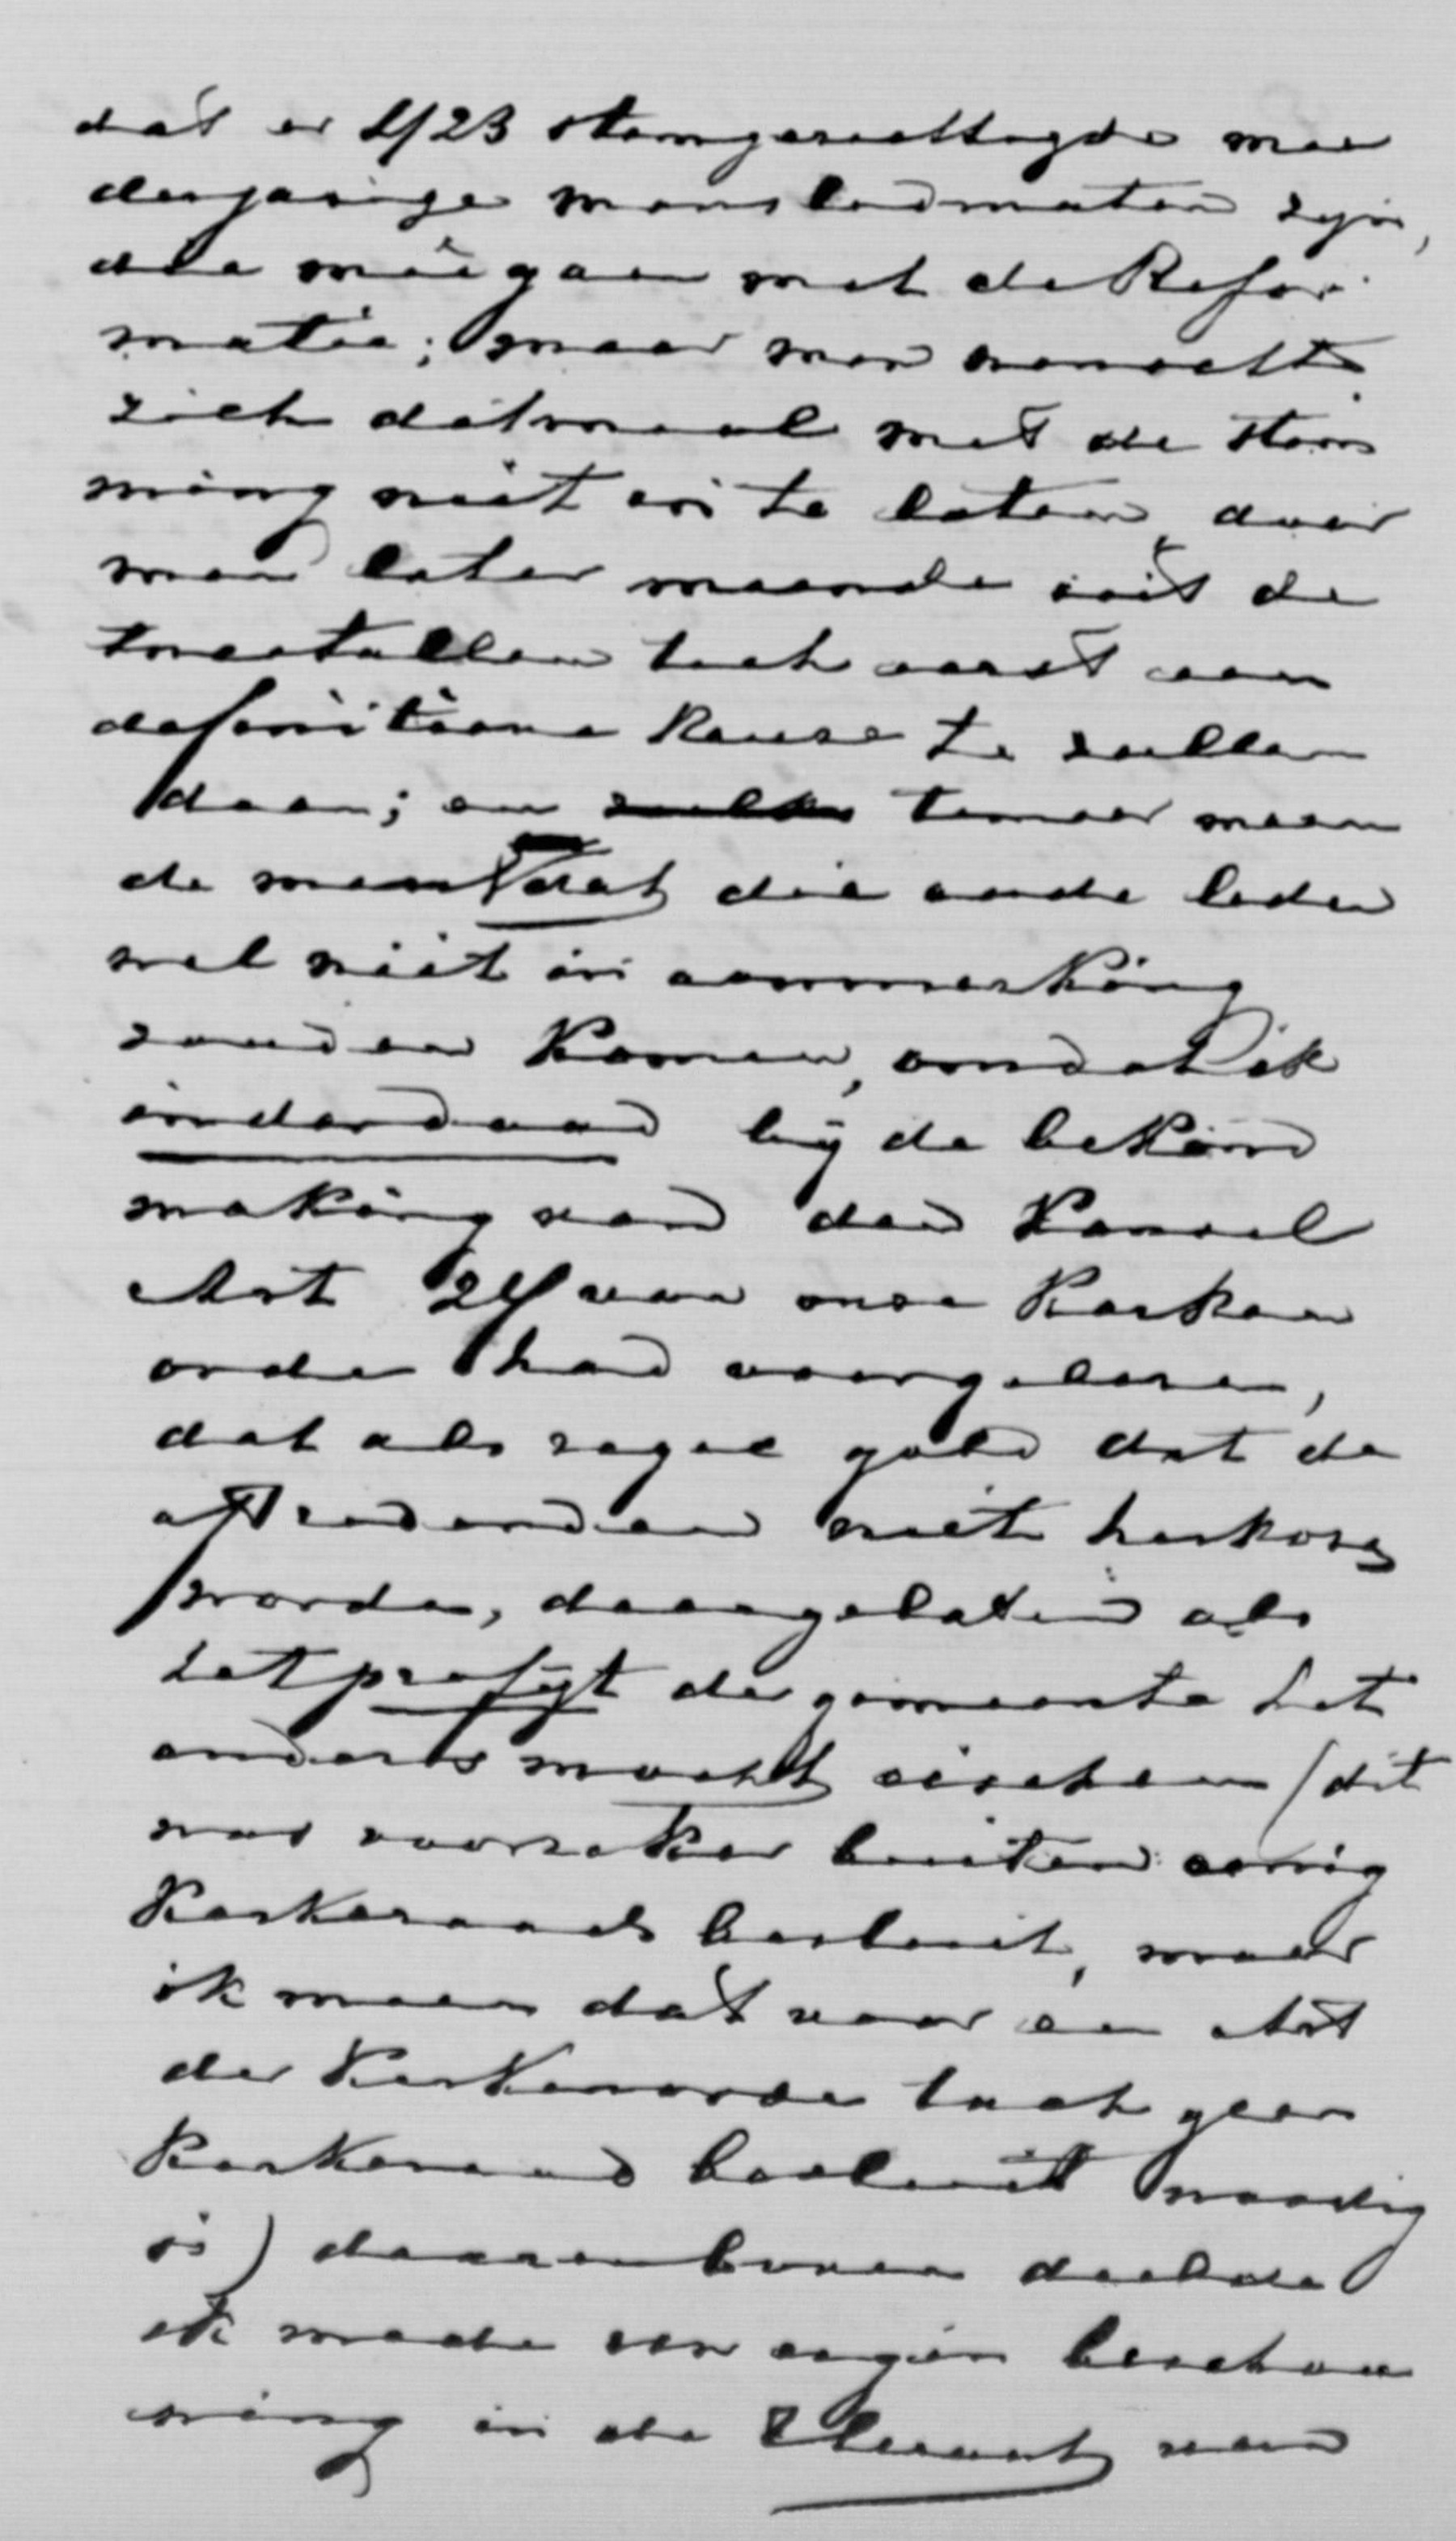 dat er 423 stemgerechtigde mee
derjarige manslidmaten zijn,
die meêgaan met de Refor
matie; maar men vernielt
zich ditmaal met de stem
ming niet in te laten, daar
men later meende uit de
tweetallen toch eerst een
definitieve keuze te zullen
doen; en temeer meen
de men dat die oude leden
wel niet in aanmerking
zouden komen, omdat ik
inderdaad bij de bekend
making van den Kansel
Art 24 van onze Kerken
orde had voorgelezen,
dat als regel gold dat de
aftredenden niet herkozen
worden, daargelaten als
het profijt der gemeente het
anders mocht eischen (dit
was voorzeker buiten eenig
Kerkeraads besluit, maar
ik meen dat voor een Art
der Kerkenorde toch geen
Kerkeraad besluit noodig
is) daarenboven deelde
ik mede een eigen beschou
wing in de Heraut van